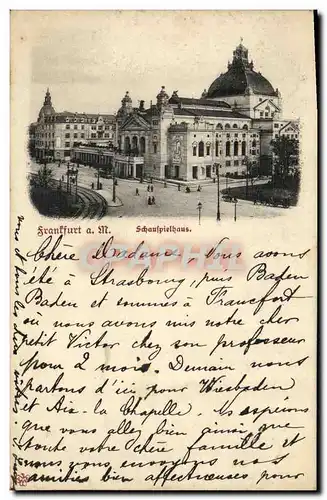 Frankfurt a. M.
Schauspielhaus.
Chère Madame, Nous avons
été à Strasbourg, puis Baden
Baden et sommes à Francfort
où nous avons mis notre cher
petit Victor chez son professeur
pour 2 mois. Demain nous
partons d'ici pour Wiesbaden
et Aix-la Chapelle. Ns espérons
que vous allez bien ainsi que
toute votre chère famille et
nous vous envoyons nos
amitiés bien affectueuses pour